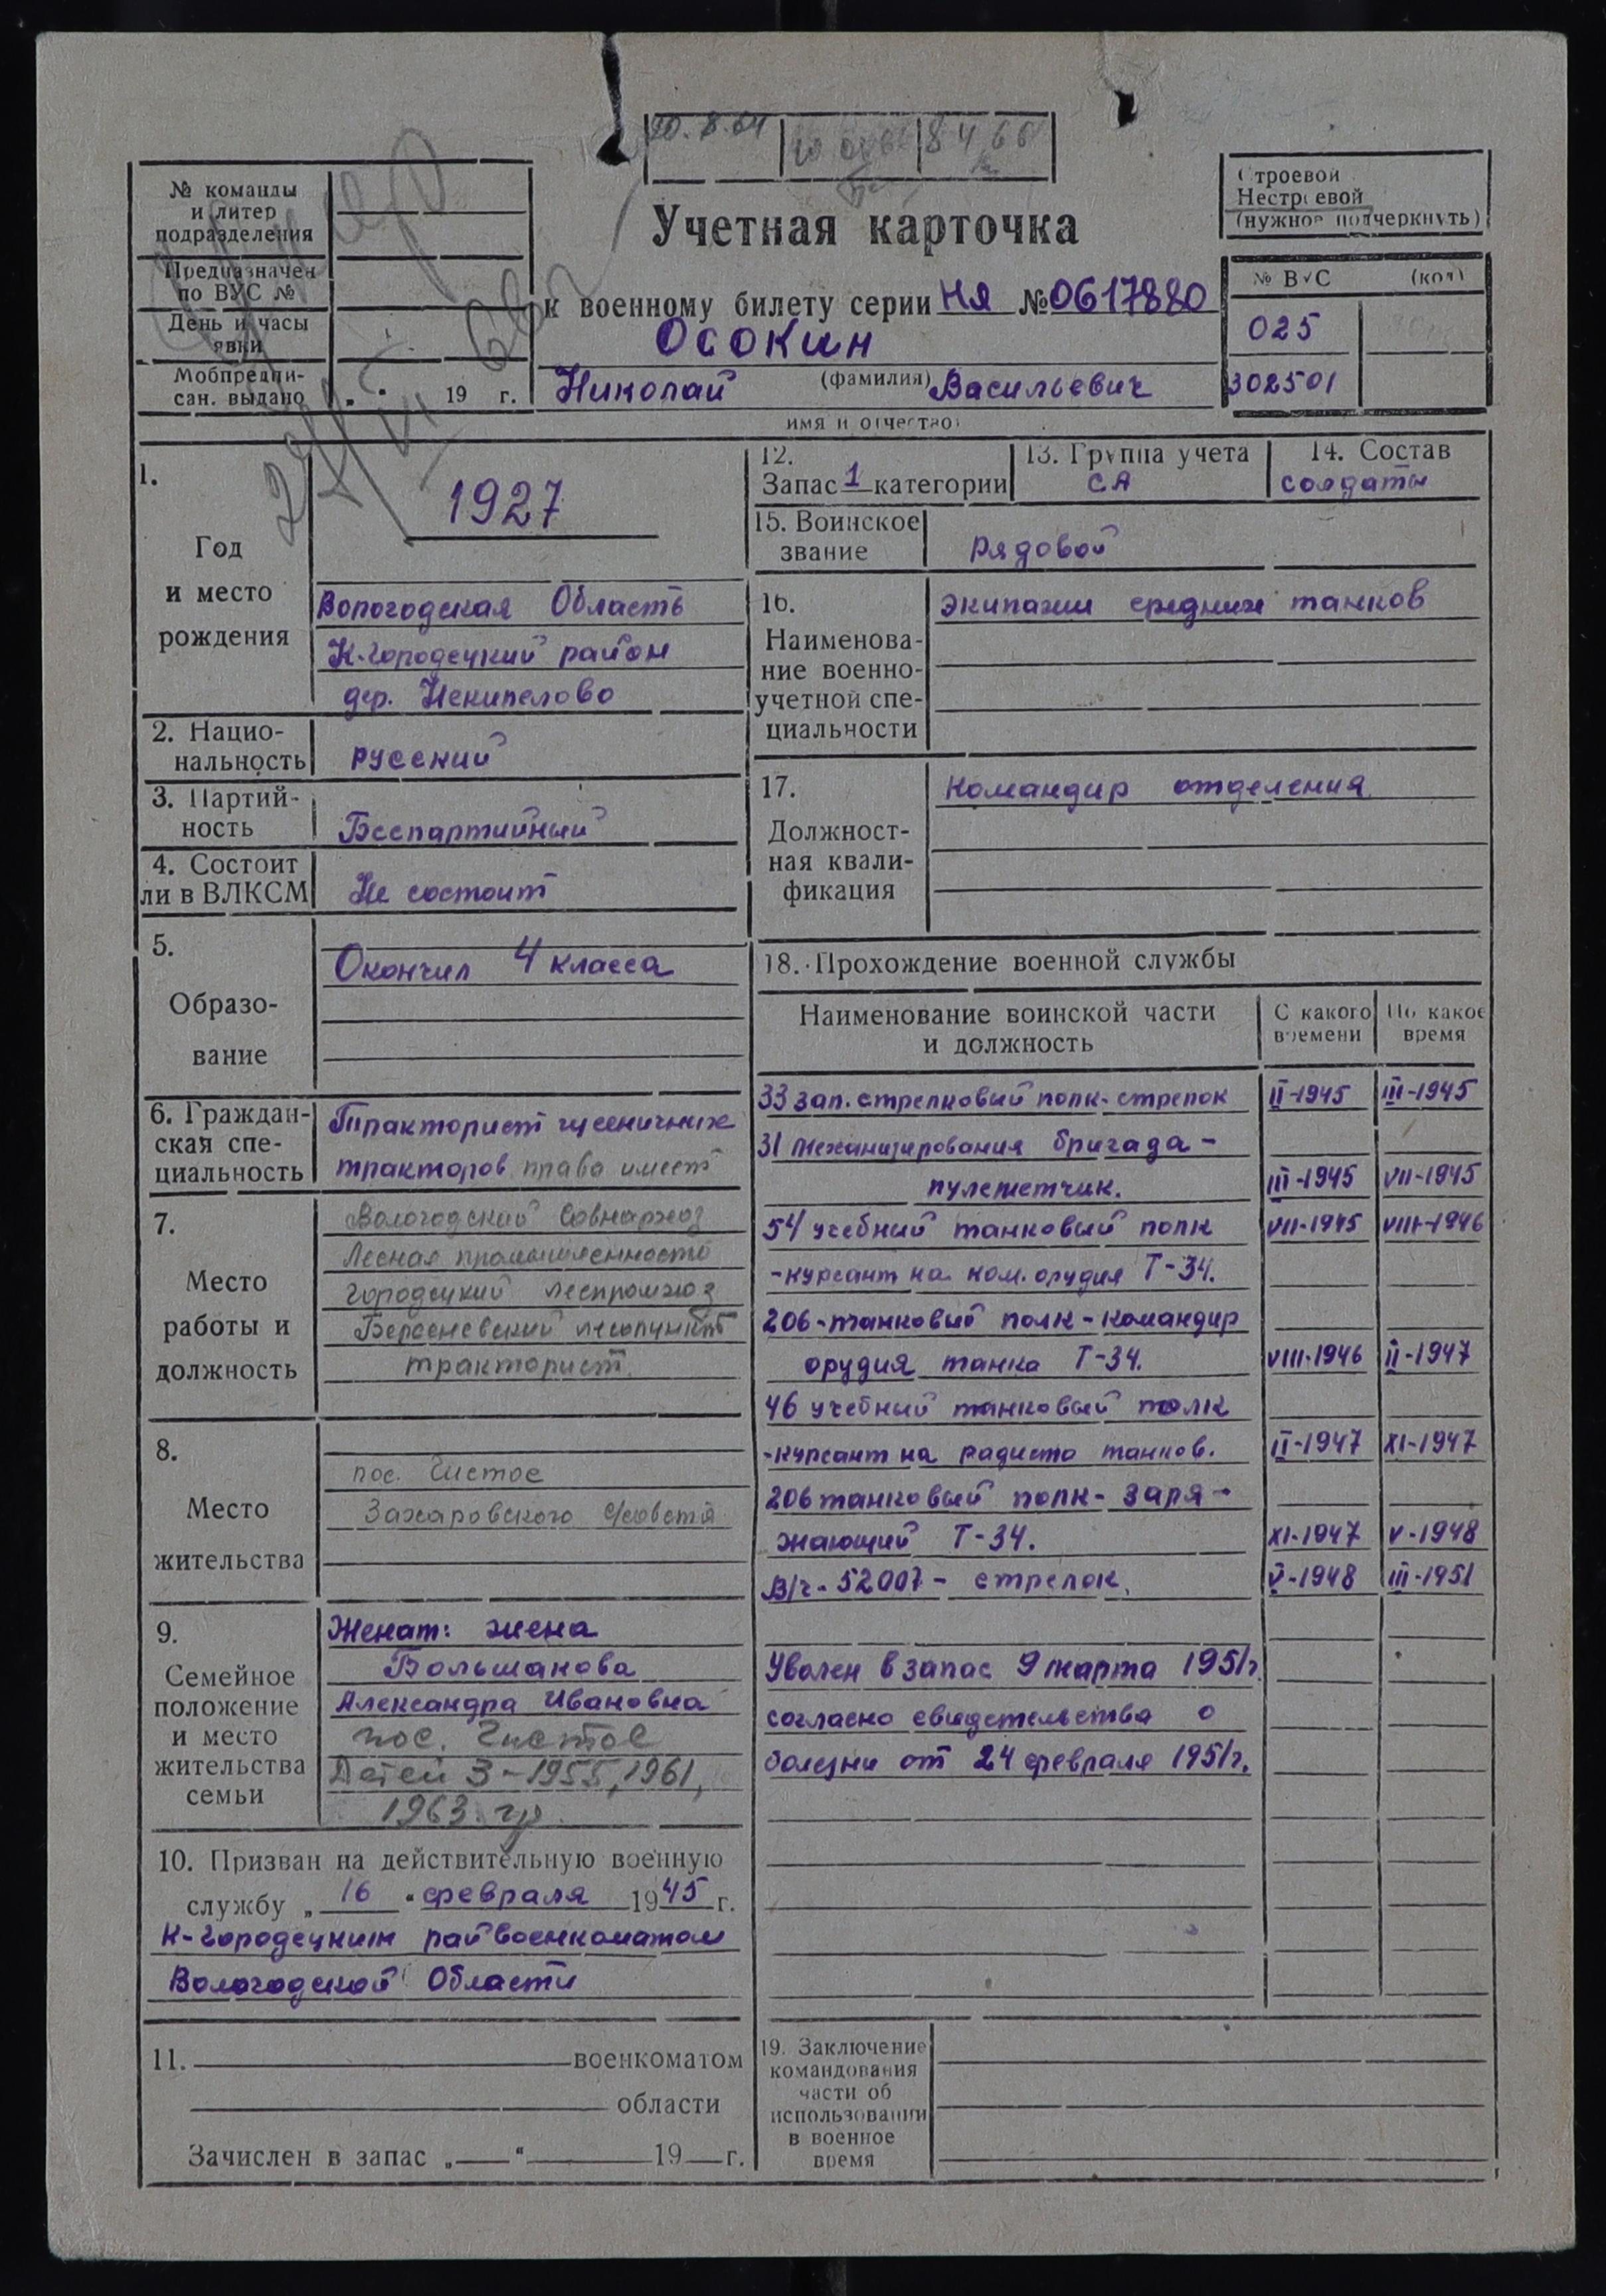 20.8.64
8 4 66
№ команды
и литер
подразделения
Предназначен
по ВУС №
День и часы
явки
Мобпредпи-
сан. выдано „ “ 19 г.
Учетная карточка
к военному билету серии НЯ № 0617880
Осокин
(фамилия)
Николай Васильевич
имя и отчество
Строевой
Нестроевой
(нужное подчеркнуть)
№ ВУС (код)
025
302501
1.
Год
и место
рождения
1927
Вологодская Область
К-городецкий район
дер. Некипелово
2. Нацио-
нальность
русский
3. Партий-
ность
Беспартийный
4. Состоит
ли в ВЛКСМ
Не состоит
5.
Образо-
вание
Окончил 4 класса
6. Граждан-
ская спе-
циальность
Тракторист гусеничных
тракторов права имеет
7.
Место
работы и
должность
Вологодский Совнархоз
Лесная промышленность
Городецкий леспромхоз
лесопункт
тракторист
8.
Место
жительства
пос. Чистое
Захаровского с/совета
9.
Семейное
положение
и место
жительства
семьи
Женат: жена
Большакова
Александра Ивановна
пос. Чистое
Детей 3-1955, 1961,
1963 гр.
10. Призван на действительную военную
службу „ 16 “ февраля 1945 г.
К-городецким райвоенкоматом
Вологодской Области
11. военкоматом
области
Зачислен в запас „ “ 19 г.
12.
Запас 1 категории
13. Группа учета
СА
14. Состав
солдаты
15. Воинское
звание
рядовой
16.
Наименова-
ние военно-
учетной спе-
циальности
экипажи средних танков
17.
Должност-
ная квали-
фикация
Командир отделения
18. Прохождение военной службы
Наименование воинской части
и должность
С какого
времени
По какое
время
33 зап. стрелковый полк-стрелок II-1945 III-1945
31 механизирования бригада -
пулеметчик. III-1945 VII-1945
54 учебный танковый полк VII-1945 VIII-1946
-курсант на ком. орудия Т-34.
206-танковый полк-командир
орудия танка Т-34. VIII-1946 II-1947
46 учебный танковый полк
-курсант на радиста танков. II-1947 XI-1947
206 танковый полк-заря-
жающий Т-34. XI-1947 V-1948
В/ч-52007- стрелок. V-1948 III-1951
Уволен в запас 9 марта 1951г.
согласно свидетельства о
болезни от 24 февраля 1951г.
19. Заключение
командования
части об
использовании
в военное
время